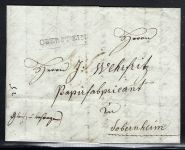 OBERSTEIN
Herrn
Herrn J. Wehfrit
Papierfabricant
in
Sobernheim